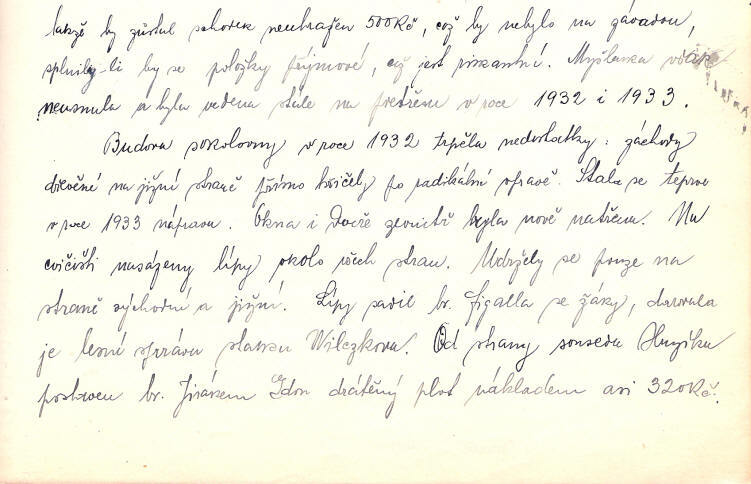 takže by zůstal schodek neuhrazen 500Kč, což by nebylo na závadu,
splnily-li by se položky příjmové, což jest riskantní. Myšlenka však
neusnula a byla vedena stále na přetřesu v roce 1932 i 1933.
Budova sokolovny v roce 1932 trpěla nedostatky: záchody
dřevěné na jižní straně přímo křičely po radikální opravě. Stala se teprve
v roce 1933 náprava. Okna i dveře zevnitř byla nově natřena. Na
cvičišti nasázeny lípy okolo všech stran. Udržely se pouze na
straně východní a jižní. Lípy sadil br. Figalla se žáky, darovala
je lesní správa statku Wilczkova. Od strany souseda
postaven br. Jiráskem drátěný plot nákladem asi 320Kč.